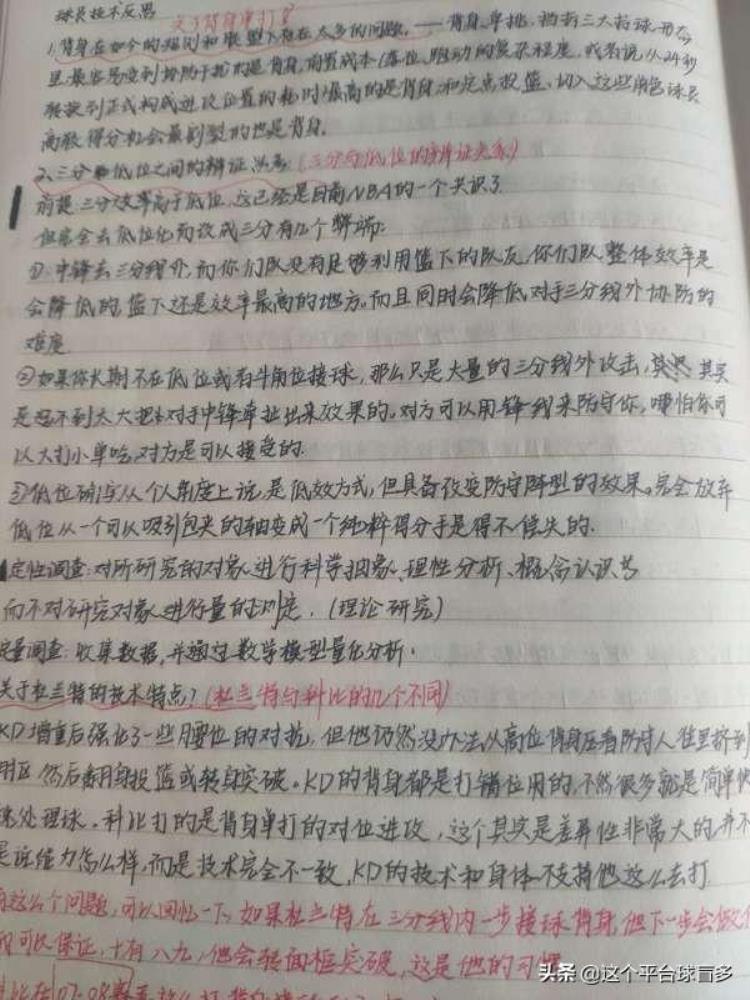 球员技术反思
关于背身单打是
1.背身在如今的规则和联盟下存在太多的问题。——背身、单挑、挡拆三大持球形态
里最容易受到协防干扰的是背身,前置成本(落位、跑动的复杂程度,或者说从24秒
转换到正式构成进攻位置的耗时)最高的是背身,和定点投篮、切入这些角色球员
高效得分机会最割裂的也是背身.
2.三分和低位之间的辩证关系(三分与低位的辩证关系)
前提:三分效率高于低位,这已经是目前NBA的一个共识了
但完全去低位化而改成三分有几个弊端:
①.中锋去三分线外,而你们队没有足够利用篮下的队友,你们队整体效率是
会降低的,篮下还是效率最高的地方。而且同时会降低对于三分线外协防的
难度.
②如果你长期不在低位或者牛角位接球,那么只是大量的三分线外攻击,其实
是起不到太大把对手中锋牵扯出来效果的,对方可以用锋线来防守你,哪怕你可
以大打小单吃,对方是可以接受的.
③低位确实从个人角度上说,是低效方式,但具备改变防守阵型的效果。完全放弃
低位从一个可以吸引包夹的轴变成一个纯粹得分手是得不偿失的.
定性调查:对所研究的对象进行科学抽象、理性分析、概念认识等
而不对研究对象进行量的测定.(理论研究)
定量调查:收集数据,并通过数学模型量化分析.
关于杜兰特的技术特点?(杜兰特与科比的几个不同)
KD增重后强化了一些腰位的对抗,但他仍然没办法从高位背身压着防守人往里挤到
用区然后翻身投篮或转身突破。KD的背身都是打错位用的,不然很多就是简单快
速处理球。科比打的是背身单打的对位进攻,这个其实是差异性非常大的,并不
是说能力怎么样,而是技术完全不一致,KD的技术和身体不支持他这么去打.
有这么个问题,可以回忆一下,如果杜兰特在三分线内一步接球背身,他下一步会做什
我可以保证,十有八九,他会转面框突破,这是他的习惯
比在07-08赛季
头条 @这个平台球盲多